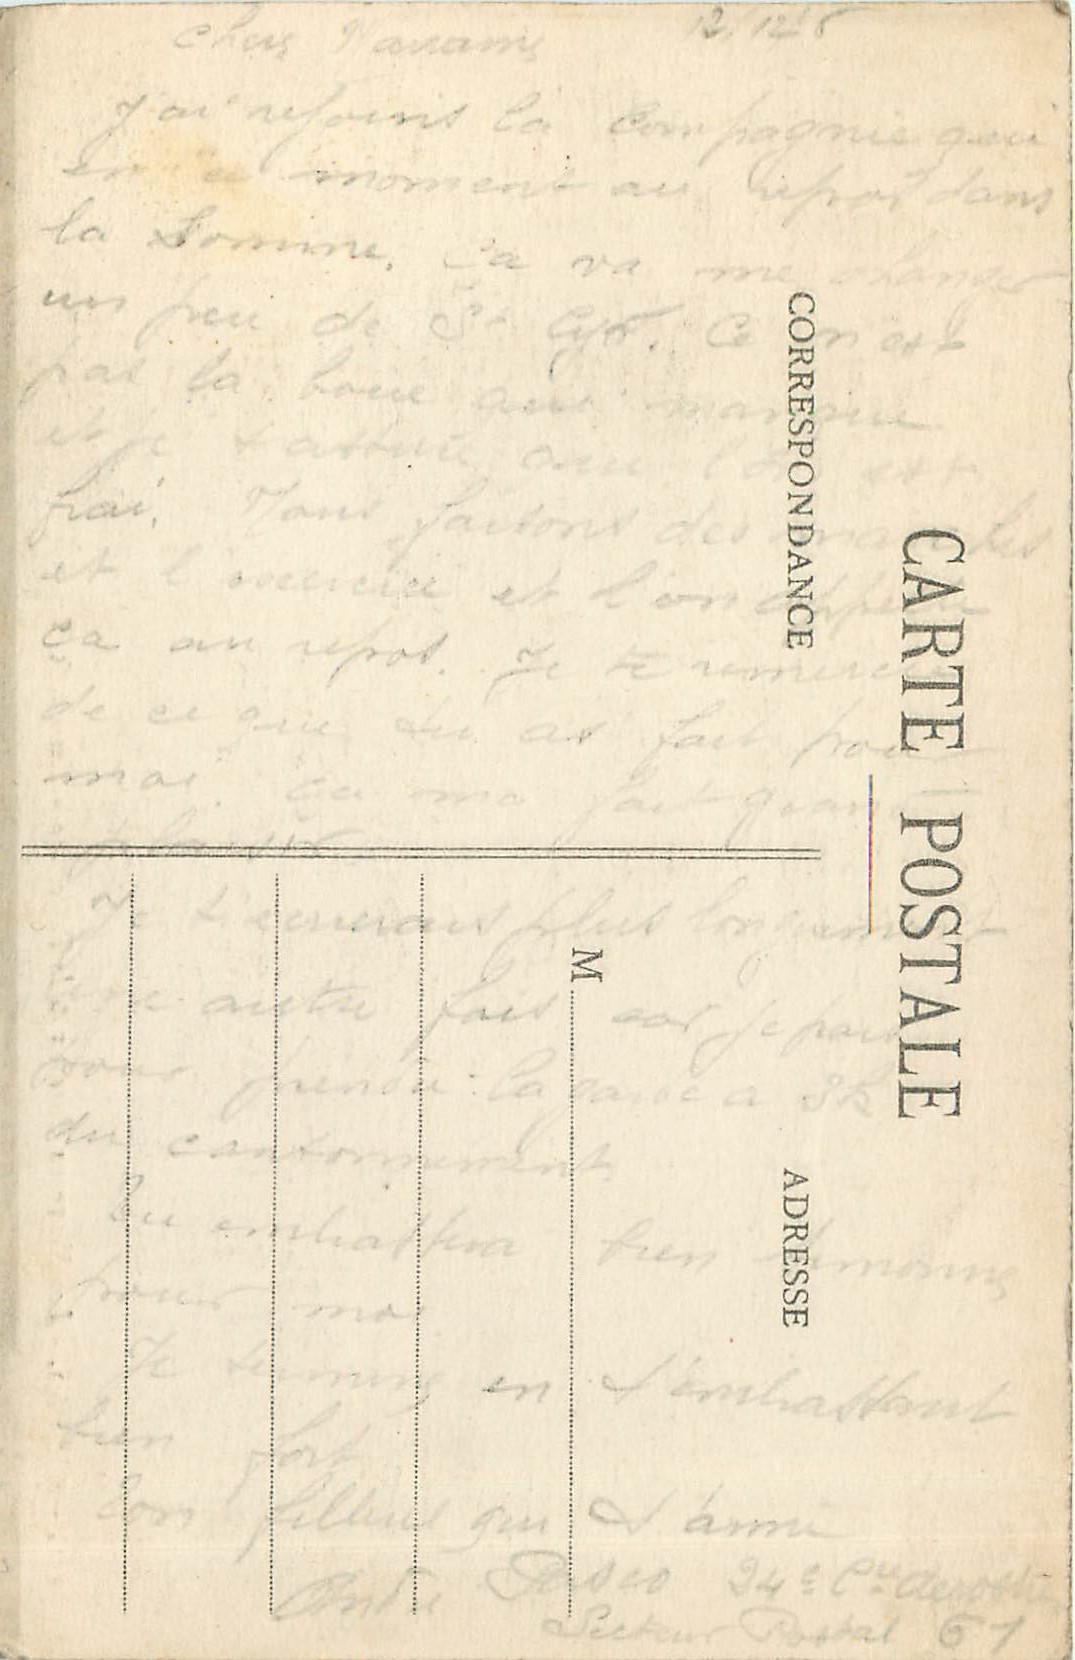 Chere Marraine
J'ai rejoins la Compagnie qui
en ce moment au repos dans
la Somme. Ca va me changer
un peu de St Cyr. Ce n'est
pas la boue qui manque
et je t'assure que l'on est
frai. Nous faisons des marches
et l'exercice et l'on appelle
ca au repos. Je te remercie
de ce que tu as fait pour
moi. Ca ma fait grand
plaisir
Je t'ecrierais plus longuement
une autre fois car je pars
pour prendre la garde a
du cantonnement
Tu embrassera bien
pour moi
Je termine en t'embrassant
bien fort
ton filleul qui t'aime
André 24e Cie
Secteur Postal 61
CARTE POSTALE
CORRESPONDANCE
ADRESSE
M